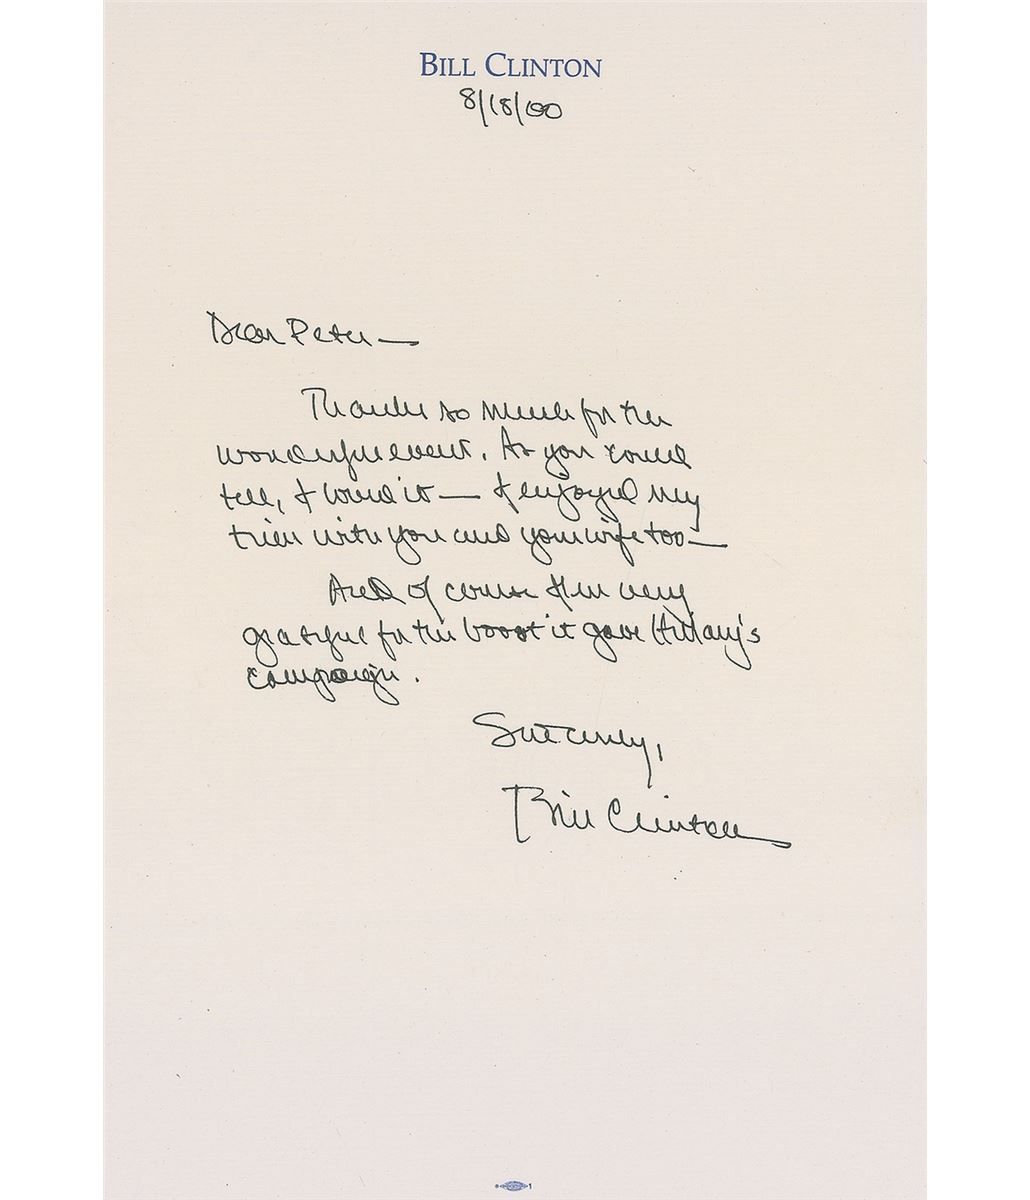 BILL CLINTON
8/18/00
Dear Peter—
Thanks so much for the
wonderful event. As you could
tell, I loved it— I enjoyed my
time with you and your wife too—
And of course I'm very
grateful for the boost it gave Hillary's
campaign.
Sincerely,
Bill Clinton